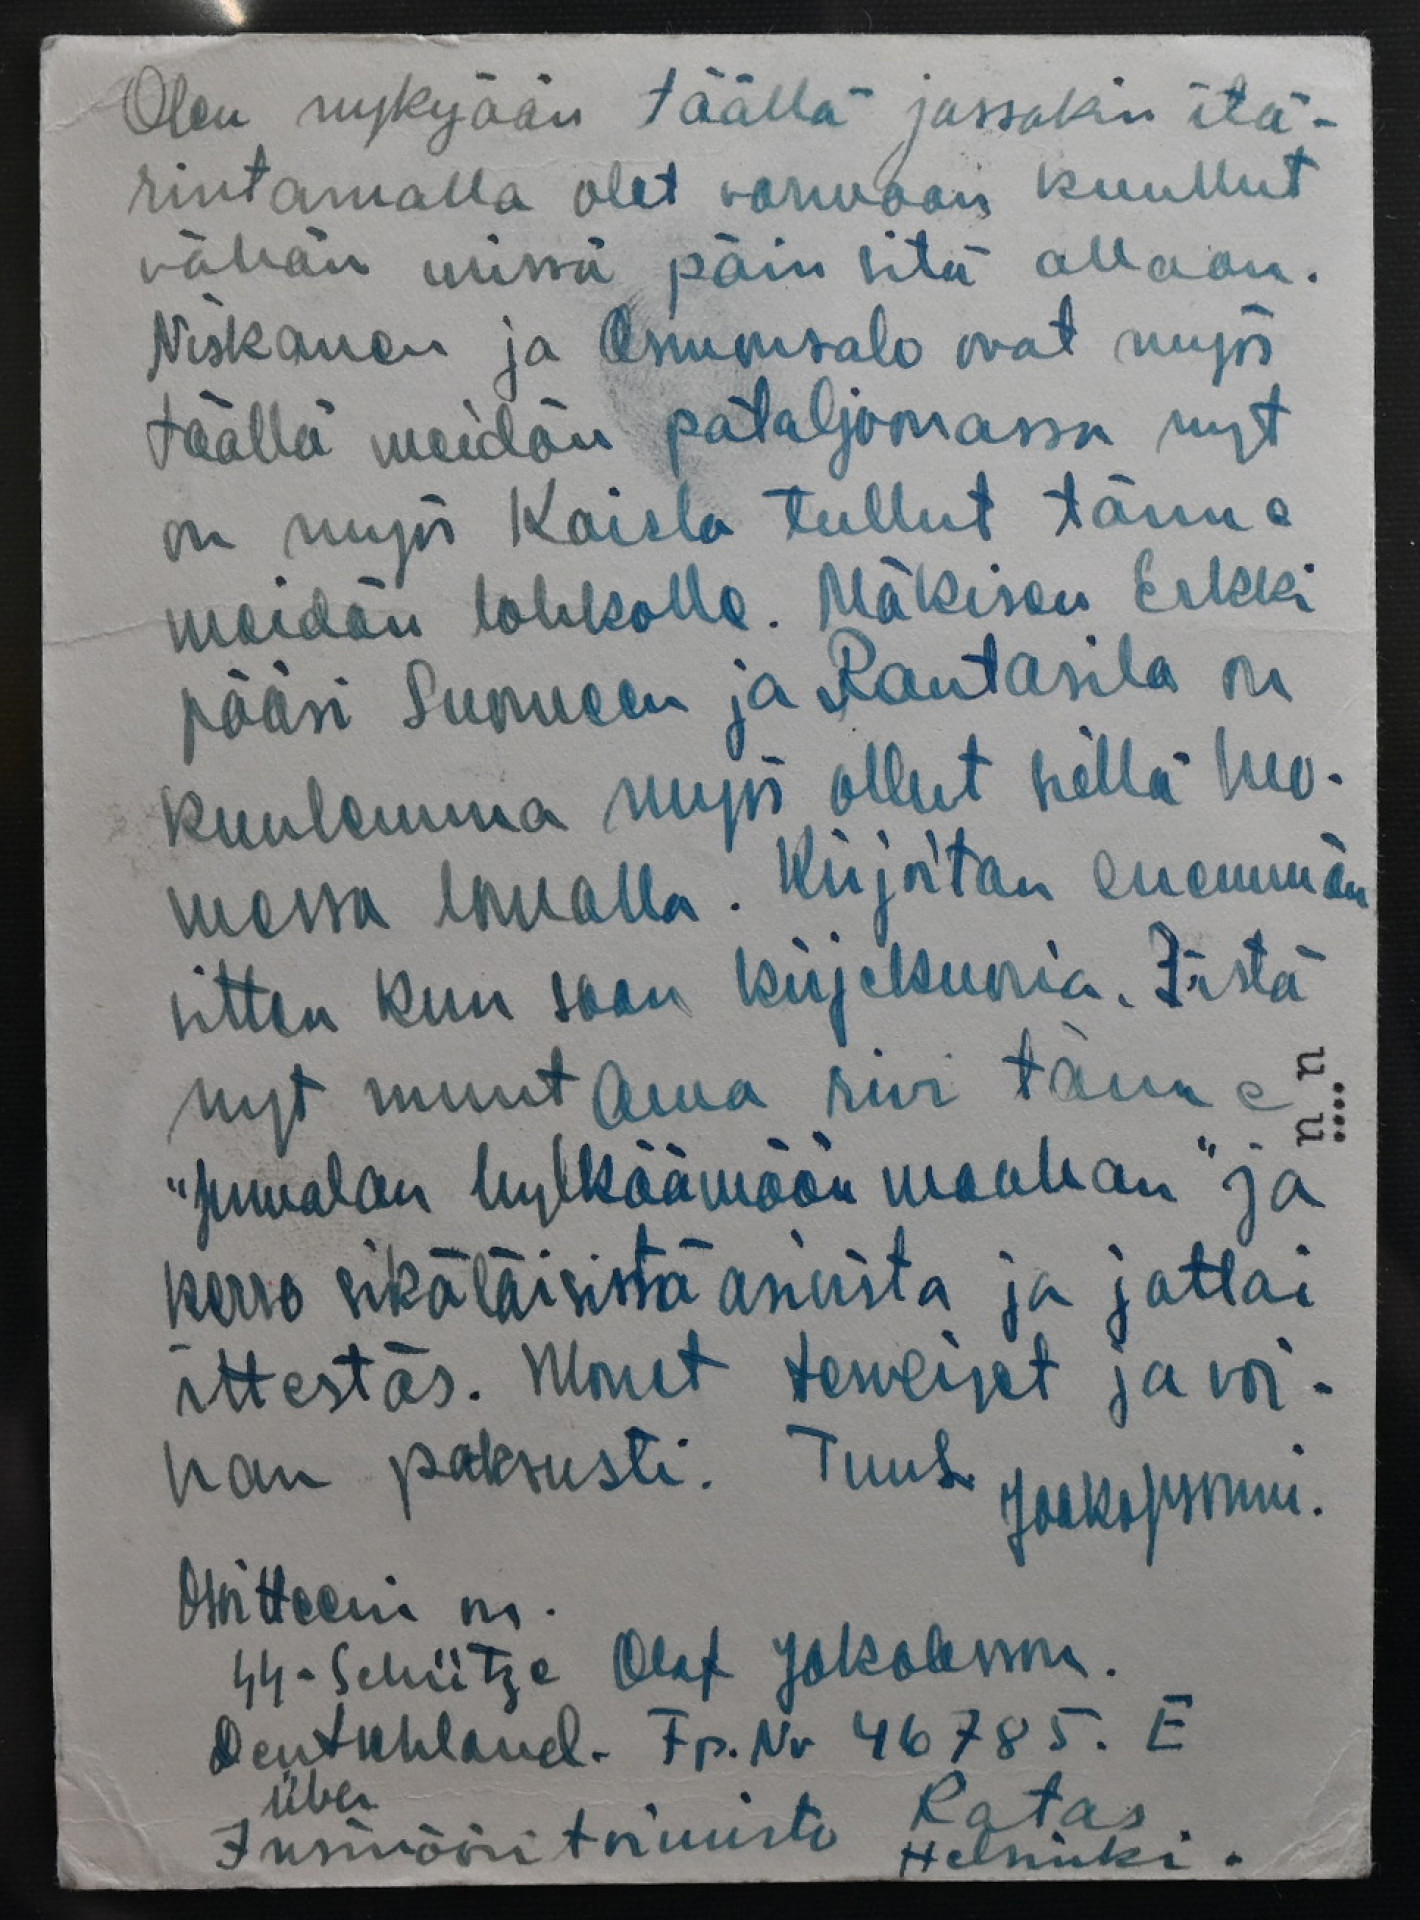 Olen nykyään täällä jossakin itä-
rintamalla olet varmaan kuullut
vähän missä päin sitä ollaan.
Niskanen ja Osmonsalo ovat myös
täällä meidän pataljoonassa nyt
on myös Kaisla tullut tänne
meidän lohkolle. Mäkisen Erkki
pääsi Suomeen ja Rautasila on
kuulemma myös ollut siellä Suo-
messa lomalla. Kirjoitan enemmän
sitten kun saan kirjekuoria. Iistä
nyt muutama rivi tänne
"Jumalan hylkäämään maahan" ja
kerro sikäläisistä asioista ja jottai
ittestäs. Monet terveiset ja voi-
han paksusti. Tuus Jaakopponni.
Osoitteeni on.
SS-Schütze Olof Jakobsson.
Deutschland. Fp. Nr 46785. E
über
Insinööritoimisto Ratas
Helsinki.
n
n